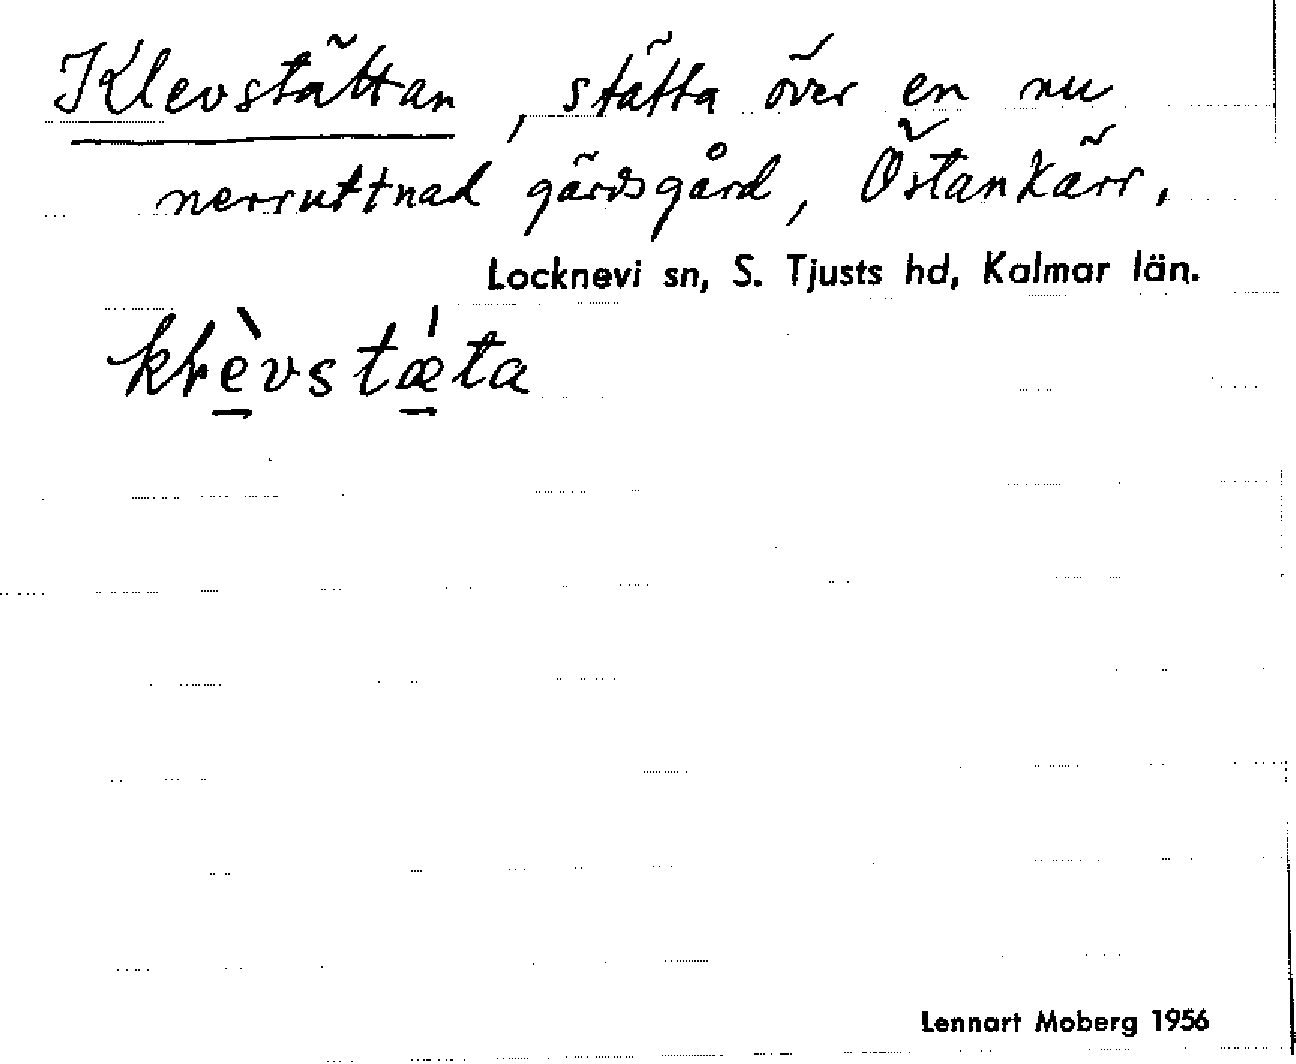 Klevstättan, stätta över en nu
nerruttnad gärdsgård, Östankärr,
Locknevi sn, S. Tjusts hd, Kalmar län.
klèvstǽta
Lennart Moberg 1956